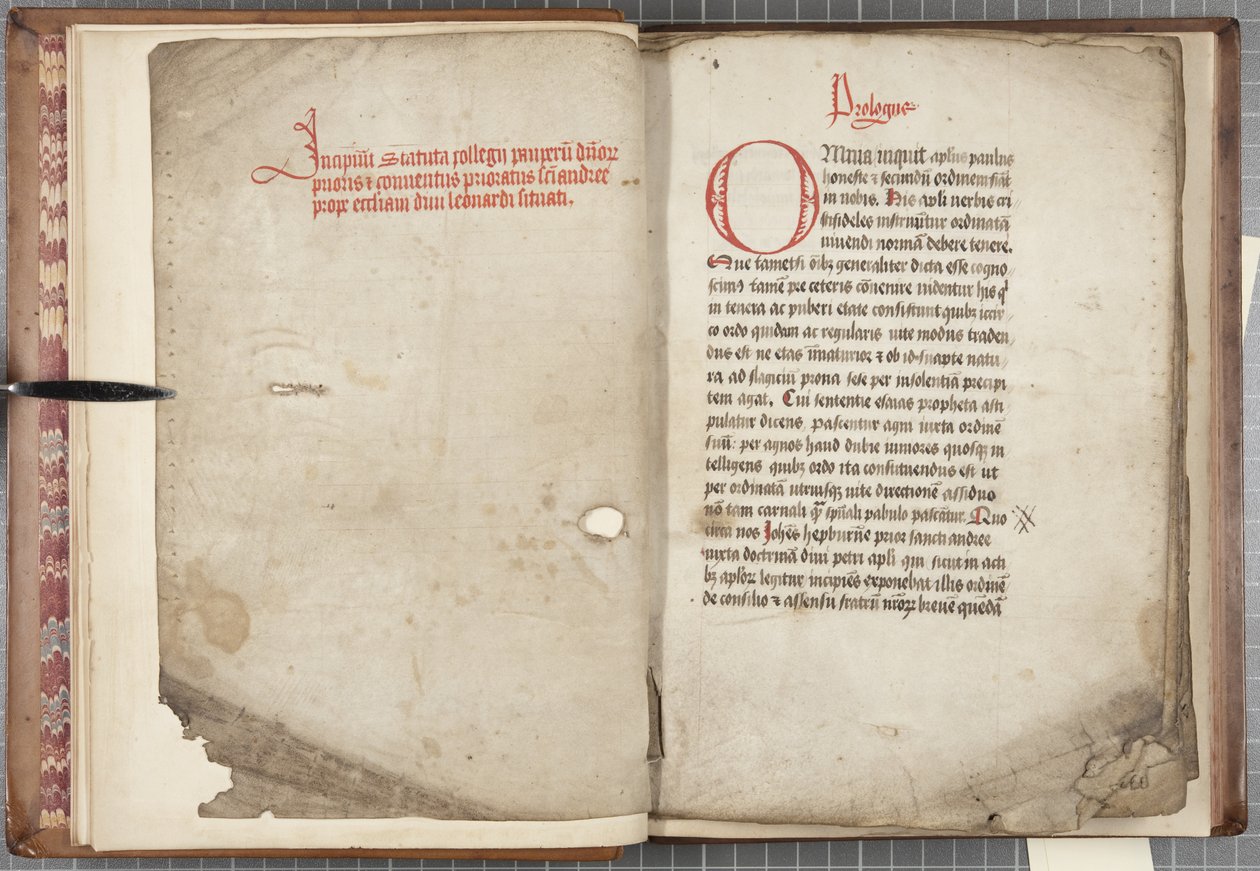 Incipiũt Statuta collegij pauperũ dñoꝝ
prioris ⁊ conuentus prioratus sc̃i andree
prope eccliam diui leonardi situati.
Prologus
OMnia inquit aplus paulus
honeste ⁊ secundũ ordinem fiãt
in nobis. His apli uerbis cri
stifideles instruũtur ordinatã
uiuendi normã debere tenere.
Que tametsi õibꝫ generaliter dicta esse cogno
scimꝰ tamẽ pre ceteris cõuenire uidentur his q̃
in tenera ac puberi etate consistunt quibꝫ iccir
co ordo quidam ac regularis uite modus traden
dus est ne etas ĩmaturior ⁊ ob id suapte natu
ra ad flagiciũ prona sese per insolentiã precipi
tem agat. Cui sententie esaias propheta asti
pulatur dicens, pascentur agni iuxta ordinẽ
suũ: per agnos haud dubie iuniores quosqꝫ in
telligens quibꝫ ordo ita constituendus est ut
per ordinatã utriusqꝫ uite directionẽ assiduo
nõ tam carnali q̃ʒ spũali pabulo pascãtur. Quo
circa nos Johẽs hepburne prior sancti andree
iuxta doctrinã diui petri apli qui sicut in acti
bꝫ aplõꝝ legitur incipiẽs exponebat illis ordinẽ
de consilio ⁊ assensu fratrũ nr̃oꝝ breuẽ quẽdã